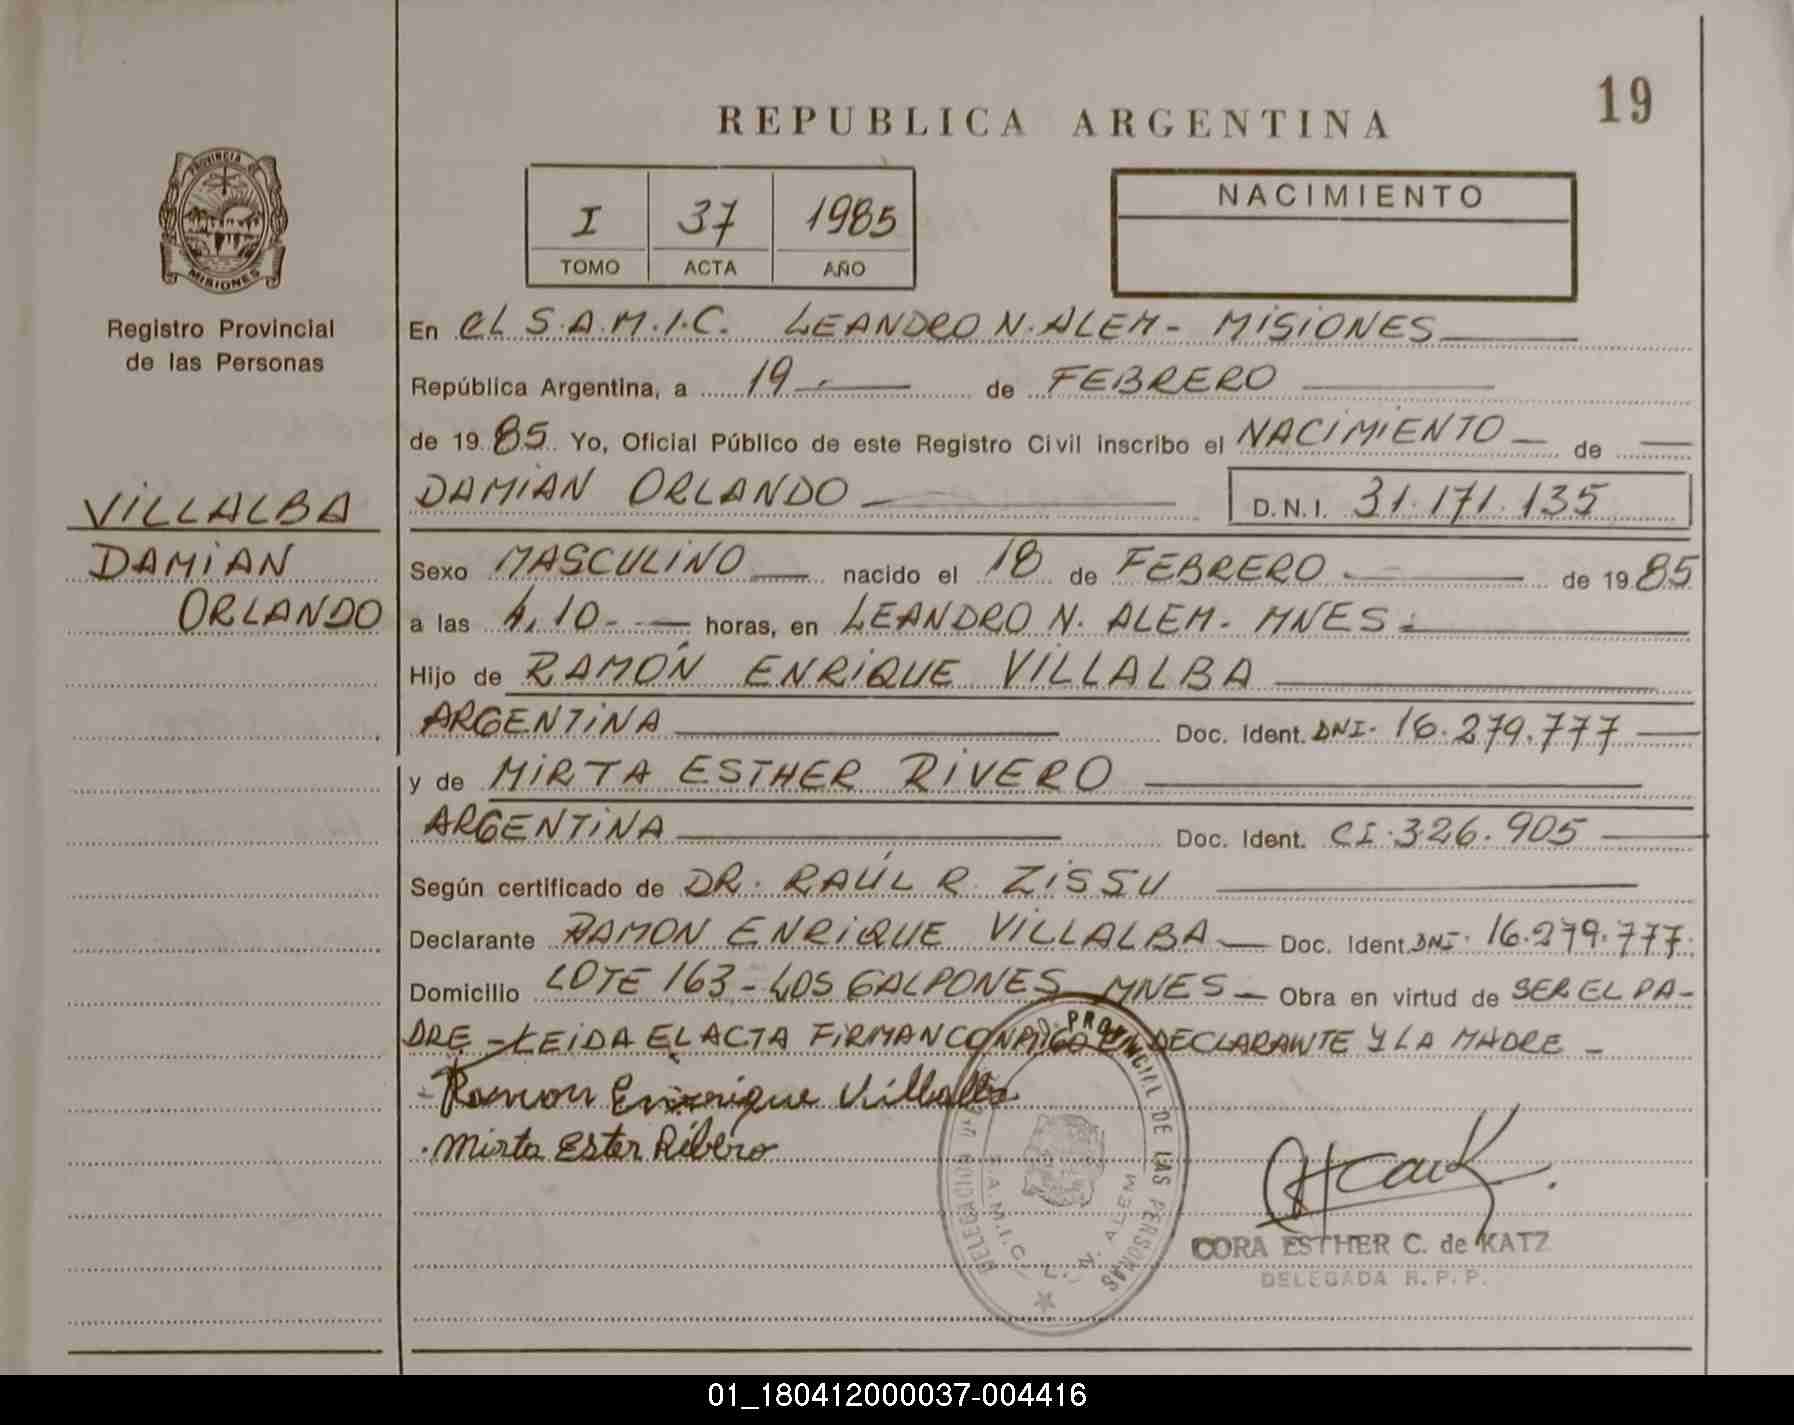 19
REPUBLICA ARGENTINA
PROVINCIA
MISIONES
Registro Provincial
de las Personas
I 37 1985
TOMO ACTA AÑO
NACIMIENTO
VILLALBA
DAMIAN
ORLANDO
En EL S.A.M.I.C. LEANDRO N. ALEM - MISIONES
República Argentina, a 19 de FEBRERO
de 1985 Yo, Oficial Público de este Registro Civil inscribo el NACIMIENTO de
DAMIAN ORLANDO D.N.I. 31.171.135
Sexo MASCULINO nacido el 18 de FEBRERO de 1985
a las 4,10 horas, en LEANDRO N. ALEM - MNES.
Hijo de RAMÓN ENRIQUE VILLALBA
ARGENTINA Doc. Ident. DNI. 16.279.777
y de MIRTA ESTHER RIVERO
ARGENTINA Doc. Ident. CI. 326.905
Según certificado de DR. RAÚL R. ZISSU
Declarante RAMON ENRIQUE VILLALBA Doc. Ident. DNI. 16.279.777.
Domicilio LOTE 163 - LOS GALPONES MNES - Obra en virtud de SER EL PA-
DRE - LEIDA EL ACTA FIRMAN CONMIGO EL DECLARANTE Y LA MADRE -
Ramon Enrrique Villalba
Mirta Ester Ribero
DELEGACION PROVINCIAL DE LAS PERSONAS
S.A.M.I.C. L. N. ALEM
CORA ESTHER C. de KATZ
DELEGADA R. P. P.
01_180412000037-004416